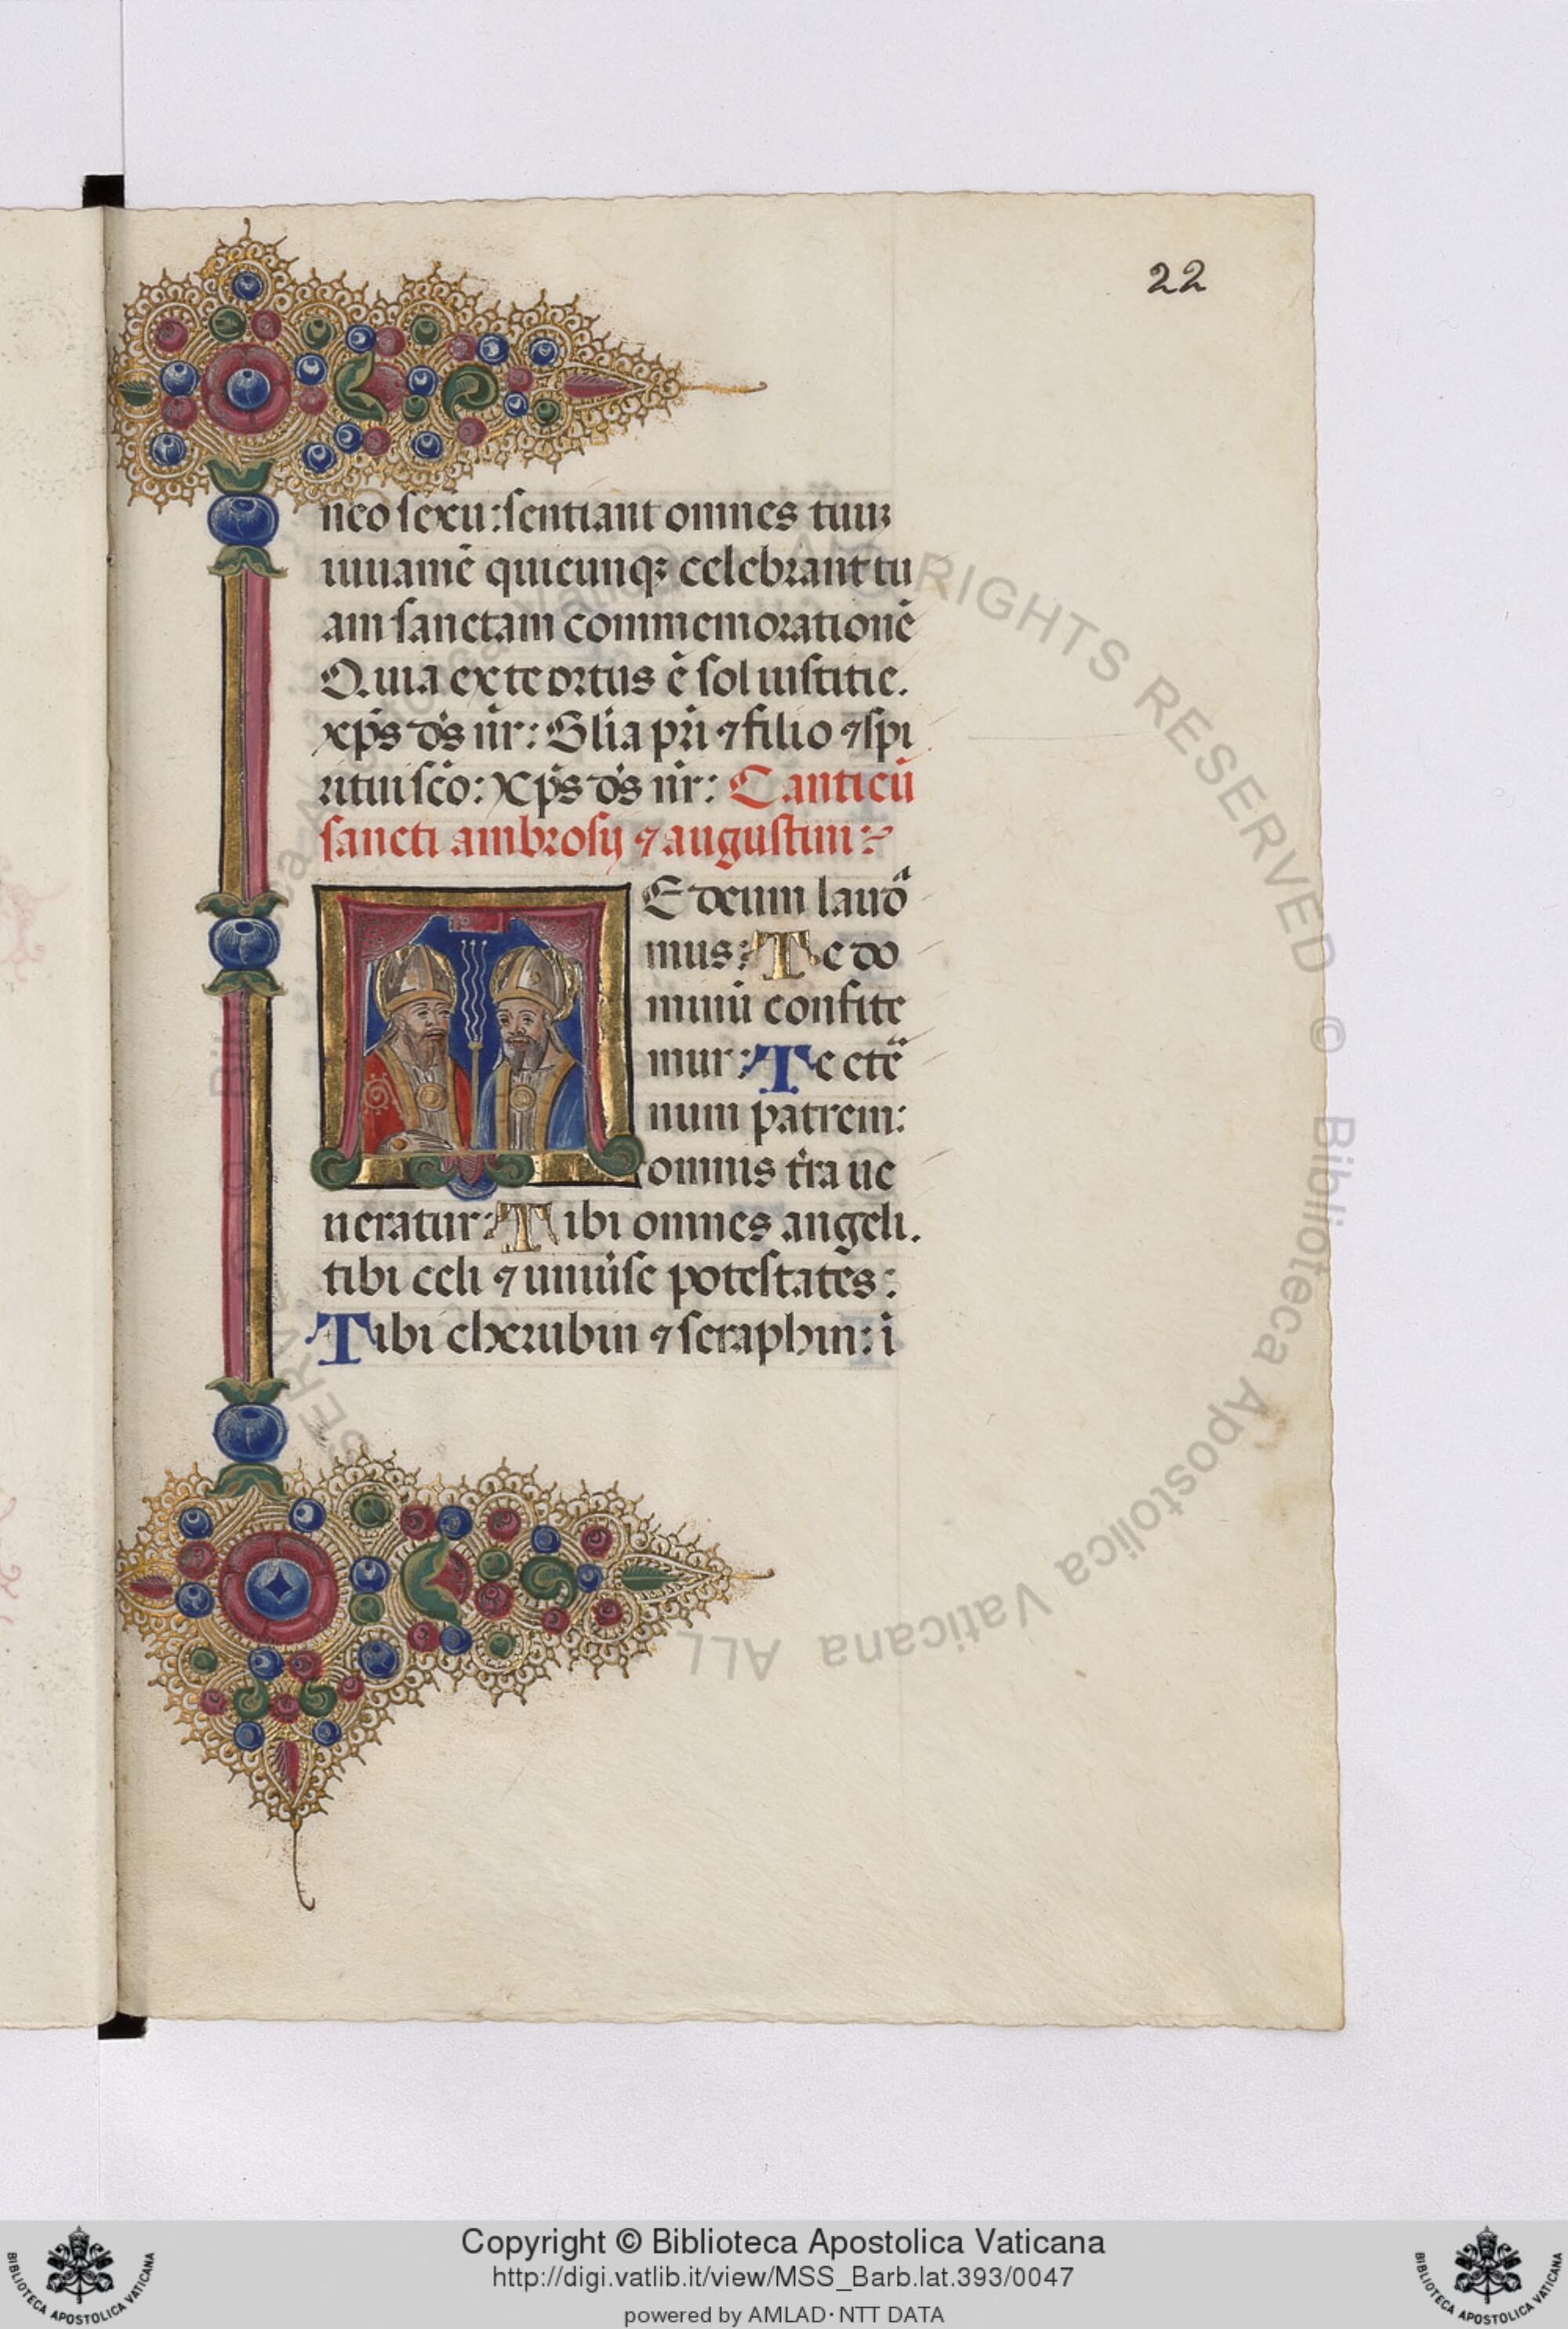 22
neo sexu: sentiant omnes tuuꝫ
iuuamē quicunqꝫ celebrant tu
am sanctam commemorationē
Quia ex te ortus ē sol iustitie.
xp̄s dꝰs nr̄: Gl̄ia pr̄i ⁊ filio ⁊ spi
ritui scō: Xp̄s dꝰs nr̄: Canticū
sancti ambrosij ⁊ augustini:
TE deum laudᵃ
mus: Te do
minū confite
mur: Te etē
num patrem:
omnis tr̄a ue
neratur: Tibi omnes angeli.
tibi celi ⁊ uniūse potestates:
Tibi cherubin ⁊ seraphin: i
© Biblioteca Apostolica Vaticana ALL RIGHTS RESERVED
Copyright © Biblioteca Apostolica Vaticana
http://digi.vatlib.it/view/MSS_Barb.lat.393/0047
powered by AMLAD·NTT DATA
BIBLIOTECA APOSTOLICA VATICANA
BIBLIOTECA APOSTOLICA VATICANA